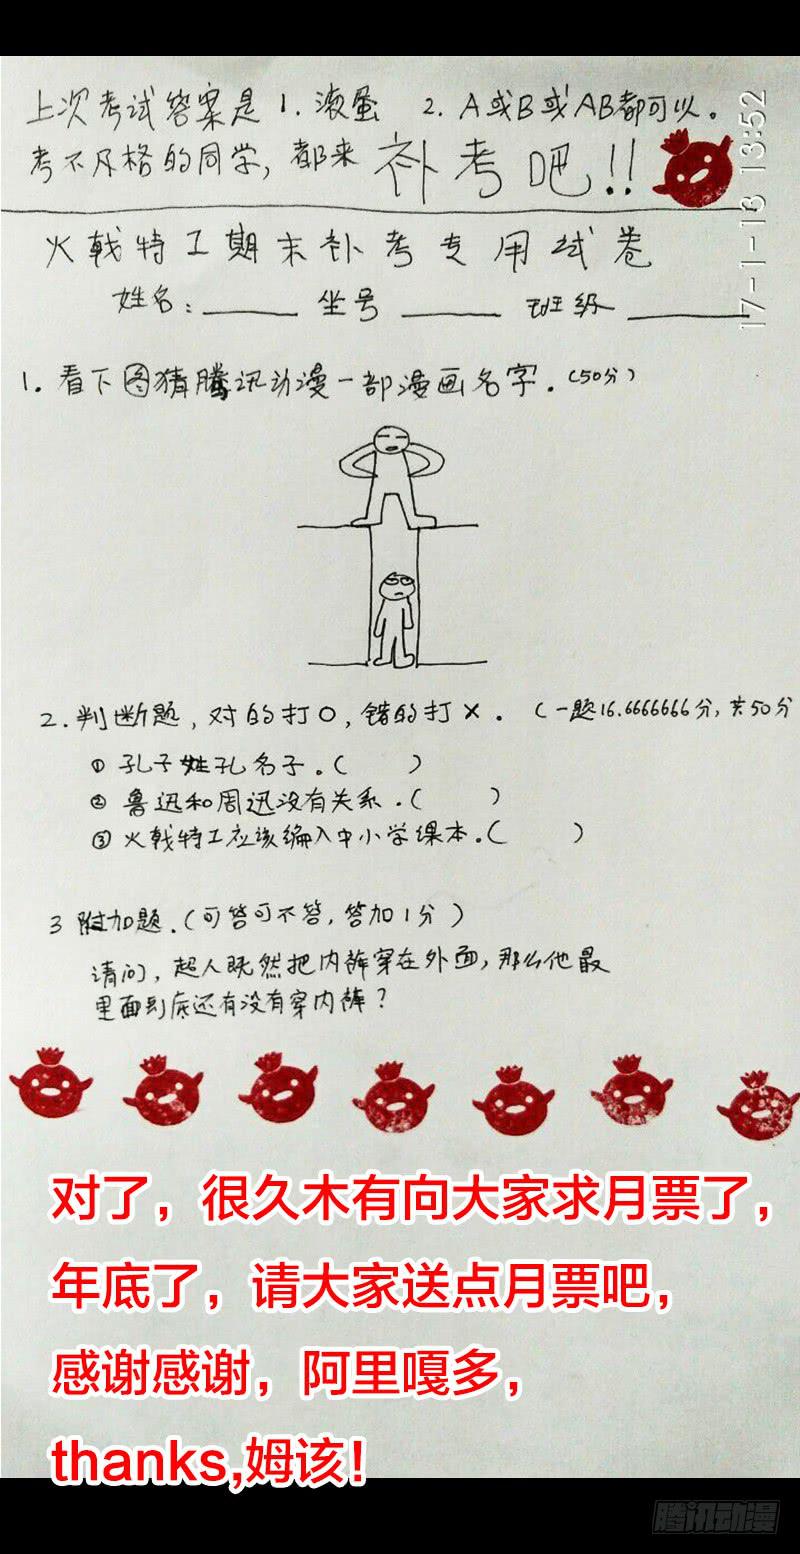 上次考试答案是 1. 滚蛋 2. A或B或AB都可以。
考不及格的同学, 都来 补考吧!!
17-1-13 13:52
火戟特工期末补考专用试卷
姓名: ______ 坐号 ______ 班级 ______
1. 看下图猜腾讯动漫一部漫画名字. (50分)
2. 判断题, 对的打O, 错的打×. (一题16.6666666分, 共50分
① 孔子姓孔名子. ( )
② 鲁迅和周迅没有关系. ( )
③ 火戟特工应该编入中小学课本. ( )
3 附加题. (可答可不答, 答加1分)
请问, 超人既然把内裤穿在外面, 那么他最
里面到底还有没有穿内裤?
对了，很久木有向大家求月票了，
年底了，请大家送点月票吧，
感谢感谢，阿里嘎多，
thanks,姆该！
腾讯动漫